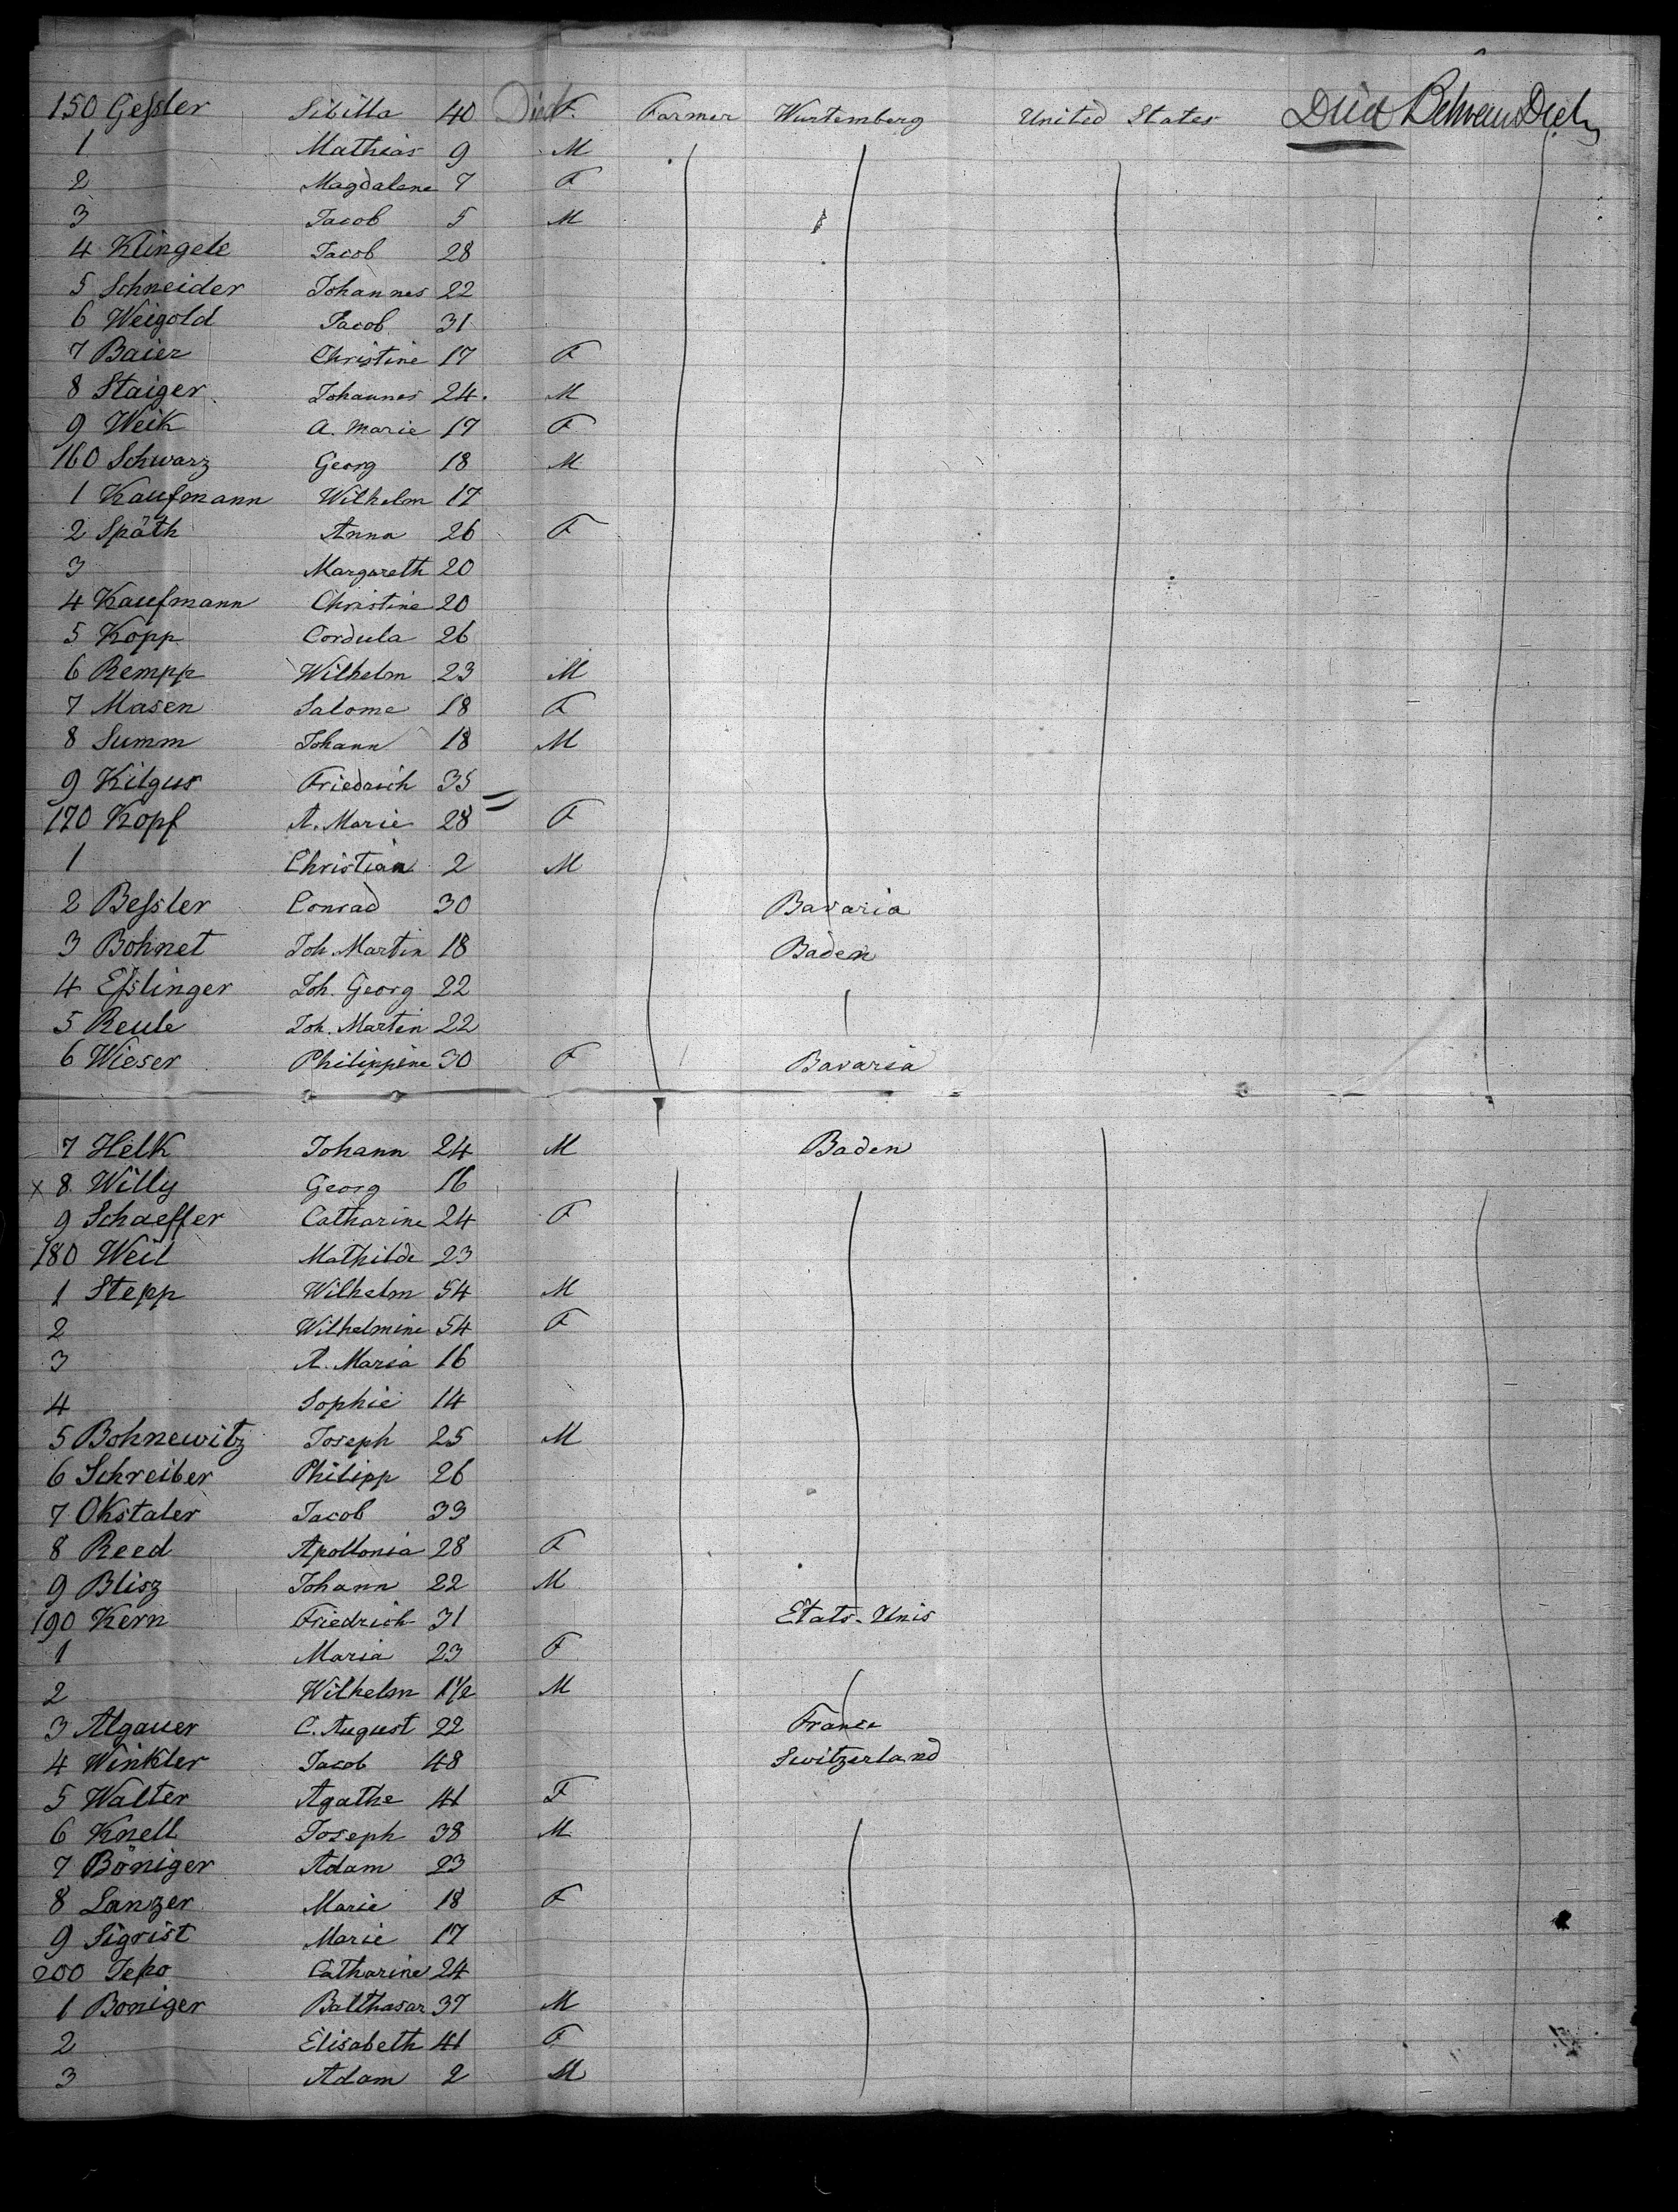 150 Gessler Sibilla 40 Died F. Farmer Wurtemberg United States Died
1 Mathias 9 M
2 Magdalene 7 F
3 Jacob 5 M
4 Klingele Jacob 28
5 Schneider Johannes 22
6 Weigold Jacob 31
7 Baier Christine 17 F
8 Staiger Johannes 24. M
9 Weik A. Marie 17 F
160 Schwarz Georg 18 M
1 Kaufmann Wilhelm 17
2 Späth Anna 26 F
3 Margareth 20
4 Kaufmann Christine 20
5 Kopp Cordula 26
6 Rempp Wilhelm 23 M
7 Masen Salome 18 F
8 Summ Johann 18 M
9 Kilgus Friedrich 35
170 Kopf A. Marie 28 F
1 Christian 2 M
2 Bessler Conrad 30 Bavaria
3 Bohnet Joh. Martin 18 Baden
4 Esslinger Joh. Georg 22
5 Reule Joh. Martin 22
6 Wieser Philippine 30 F Bavaria
7 Helk Johann 24 M Baden
x 8. Willy Georg 16
9 Schaeffer Catharine 24 F
180 Weil Mathilde 23
1 Stepp Wilhelm 54 M
2 Wilhelmine 54 F
3 A. Maria 16
4 Sophie 14
5 Bohnewitz Joseph 25 M
6 Schreiber Philipp 26
7 Okstaler Jacob 33
8 Reed Apollonia 28 F
9 Blisz Johann 22 M
190 Kern Friedrich 31 Etats-Unis
1 Maria 23 F
2 Wilhelm 1 1/2 M
3 Algauer C. August 22 France
4 Winkler Jacob 48 Switzerland
5 Walter Agathe 41 F
6 Knell Joseph 38 M
7 Böniger Adam 23
8 Lanzer Marie 18 F
9 Sigrist Marie 17
200 Catharine 24
1 Boniger Balthasar 37 M
2 Elisabeth 41 F
3 Adam 2 M